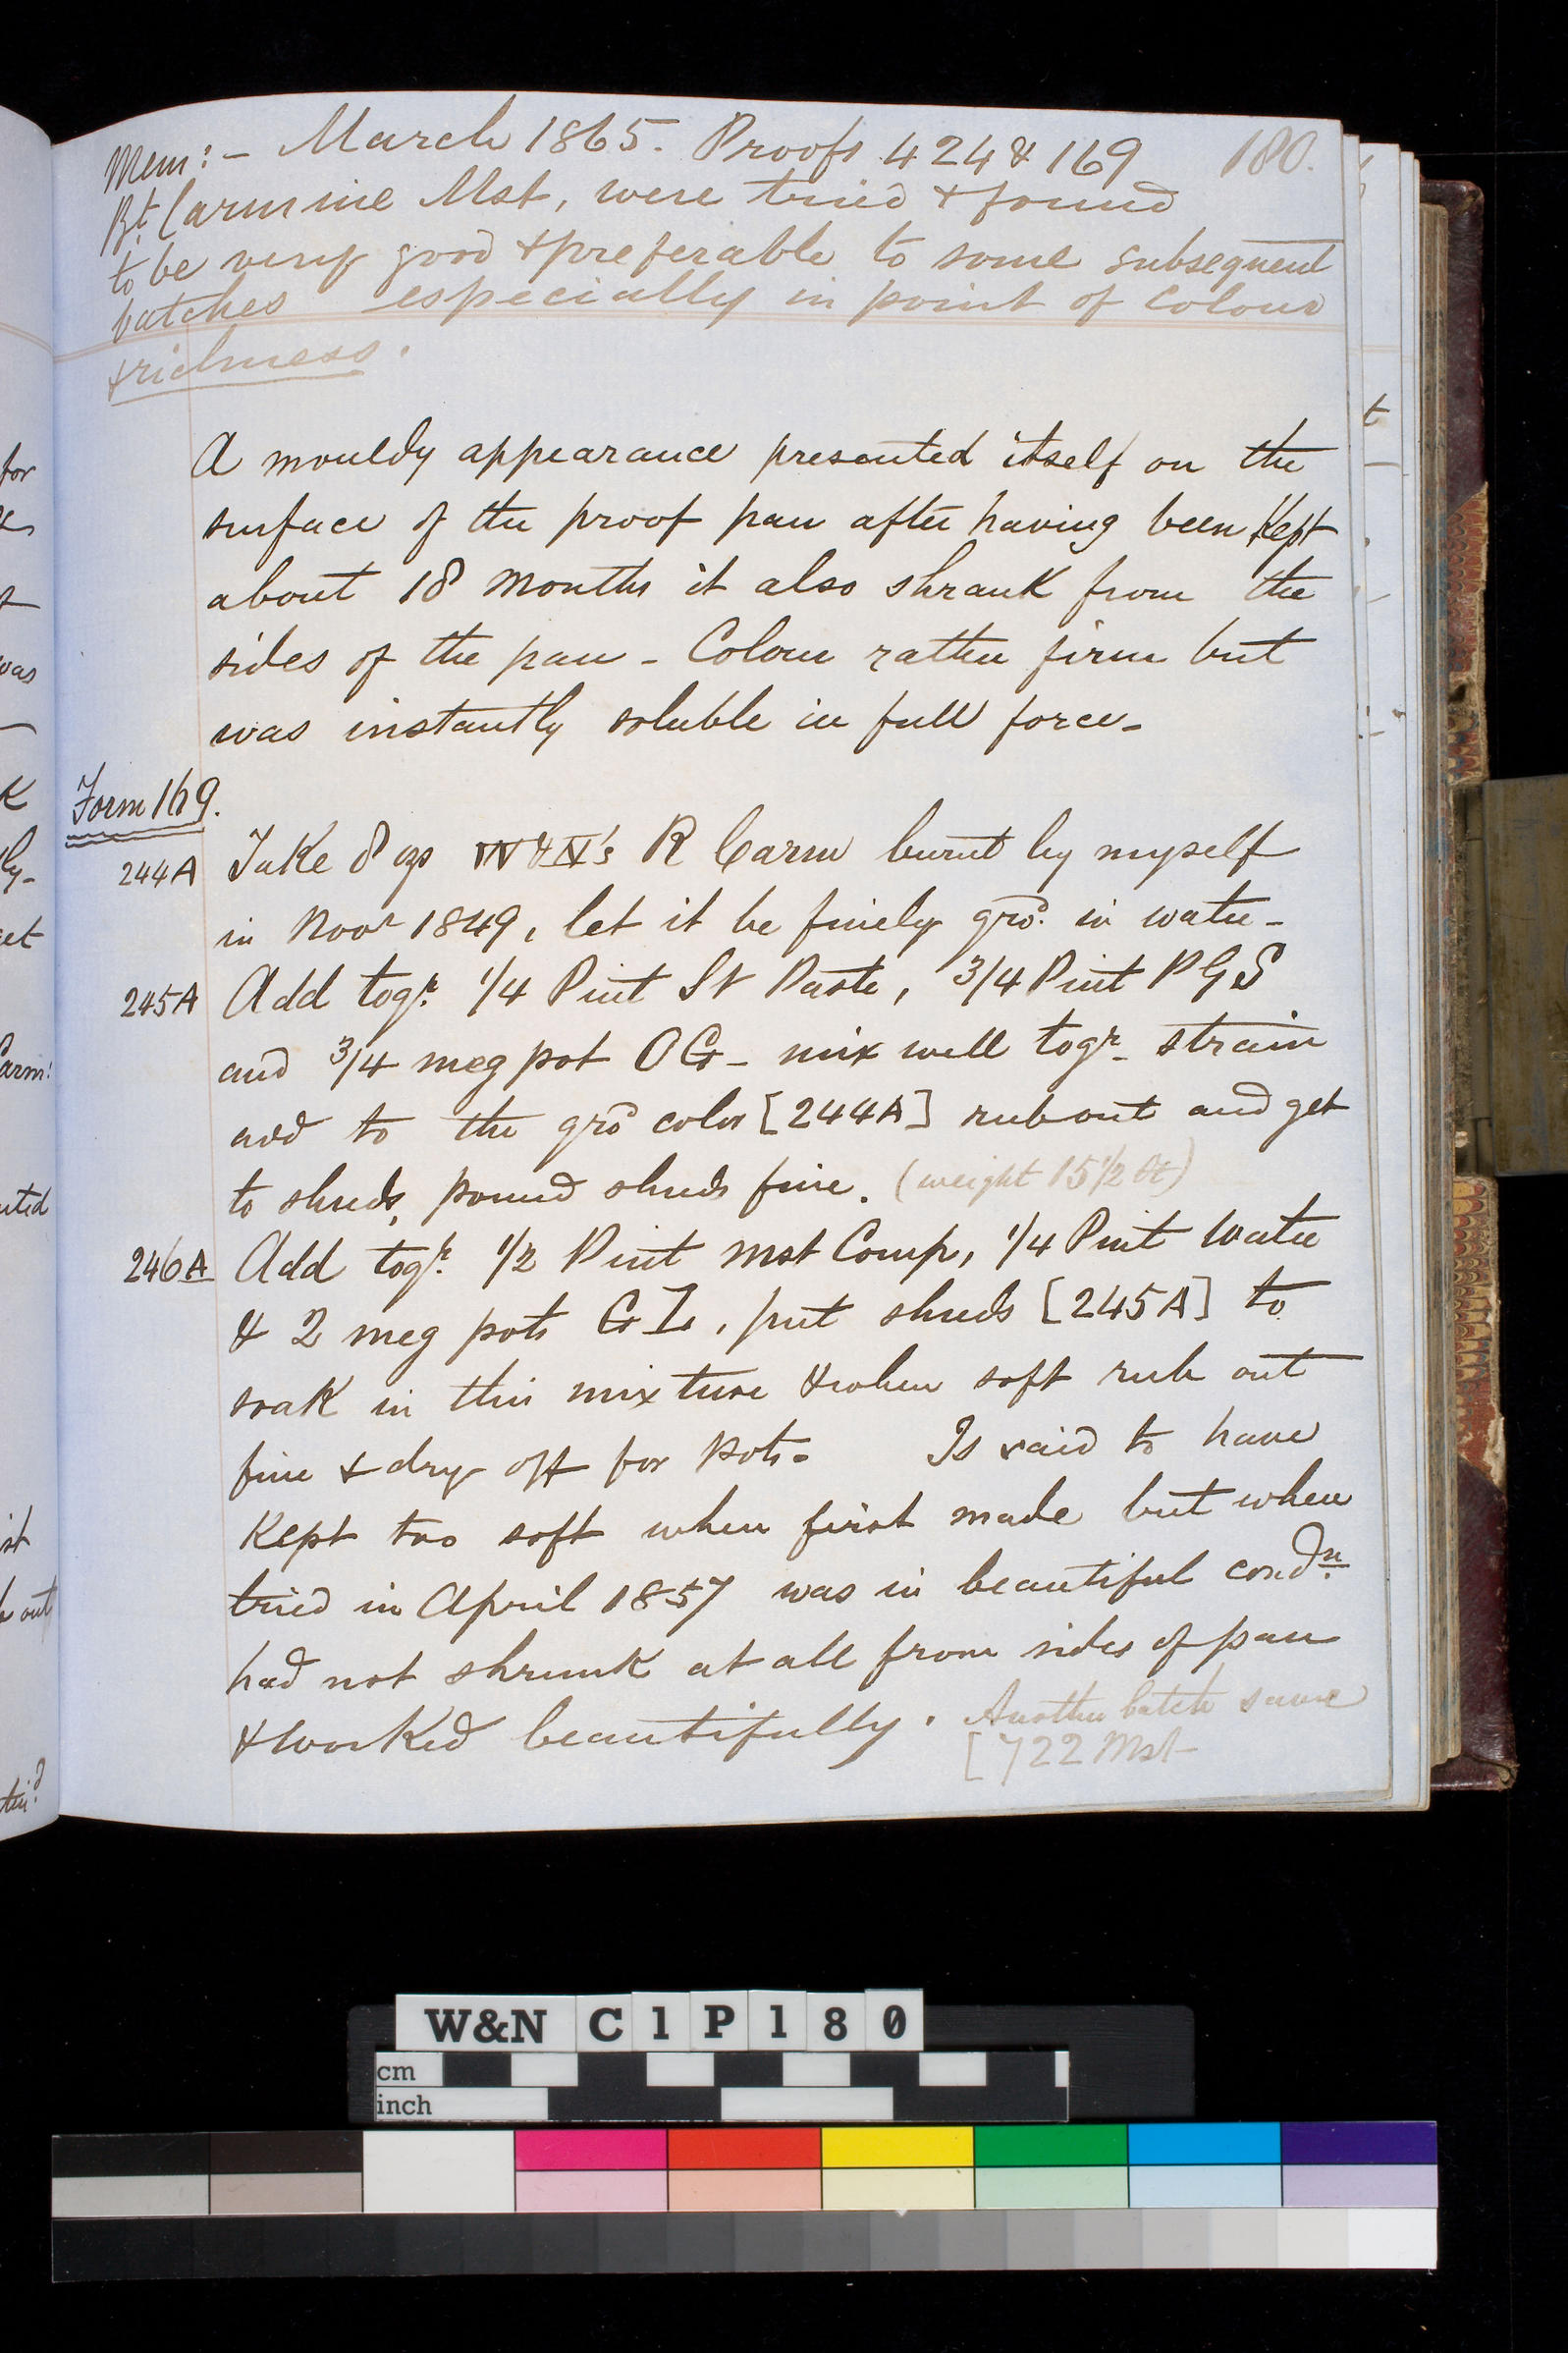 Mem: - March 1865. Proofs 424 & 169
180.
Bt. Carmine Mst, were tried & found
to be very good & preferable to some subsequent
batches especially in point of Colour
& richness.
A mouldy appearance presented itself on the
surface of the proof pan after having been Kept
about 18 months it also shrank from the
sides of the pan - Colour rather firm but
was instantly soluble in full force -
Form 169.
244A Take 8 ozs W & N's R Carm burnt by myself
in Novr 1849, let it be finely grd. in water -
245A Add togr. 1/4 Pint St Paste, 3/4 Pint P G S
and 3/4 meg pot O G - mix well togr - strain
add to the grd color [244A] rub out and get
to shreds, pound shreds fine. (weight 15 1/2 )
246A Add togr. 1/2 Pint Mst Comp, 1/4 Pint Water
& 2 meg pots G , put shreds [245A] to
soak in this mixture & when soft rub out
fine & dry off for pots - Is said to have
Kept too soft when first made but when
tried in April 1857 was in beautiful condn.
had not shrunk at all from sides of pan
& worked beautifully. Another batch same
[722 Mst -
for
was
K
ly -
Carm:
out
W&N C1P180
cm
inch